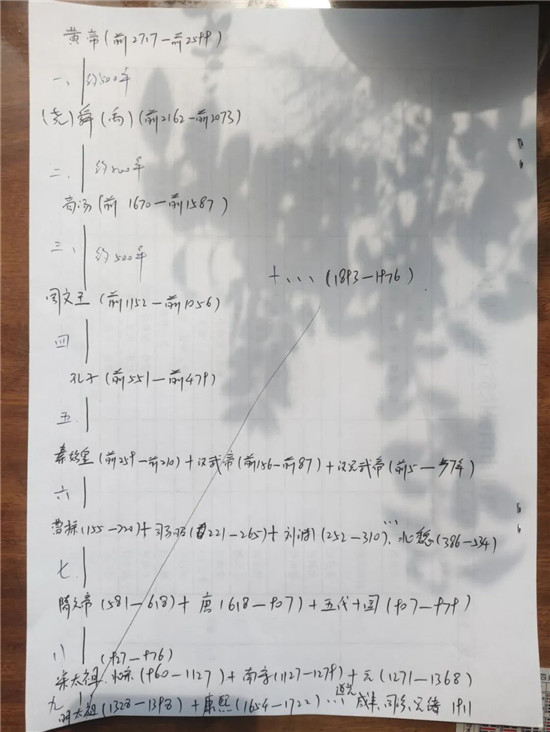 黄帝(前2717—前2599)
一、约500年
(尧)舜(禹)(前2162—前2073)
二、约500年
商汤(前1670—前1587)
三、约500年
十、、、(1893—1976)
周文王(前1152—前1056)
四
孔子(前551—前479)
五.
秦始皇(前259—前210)+汉武帝(前156—前87)+汉光武帝(前5—57年)
六
曹操(155—220)+司马昭(221—265)+刘渊(252—310)…北魏(386—534)
七.
隋文帝(581—618)+唐(618—907)+五代十国(907—979)
八
(927—976)
宋太祖.北宋(960—1127)+南宋(1127—1279)+元(1271—1368)
九
明太祖(1328—1398)+康熙(1654—1722)…道光 咸丰.同治.1911